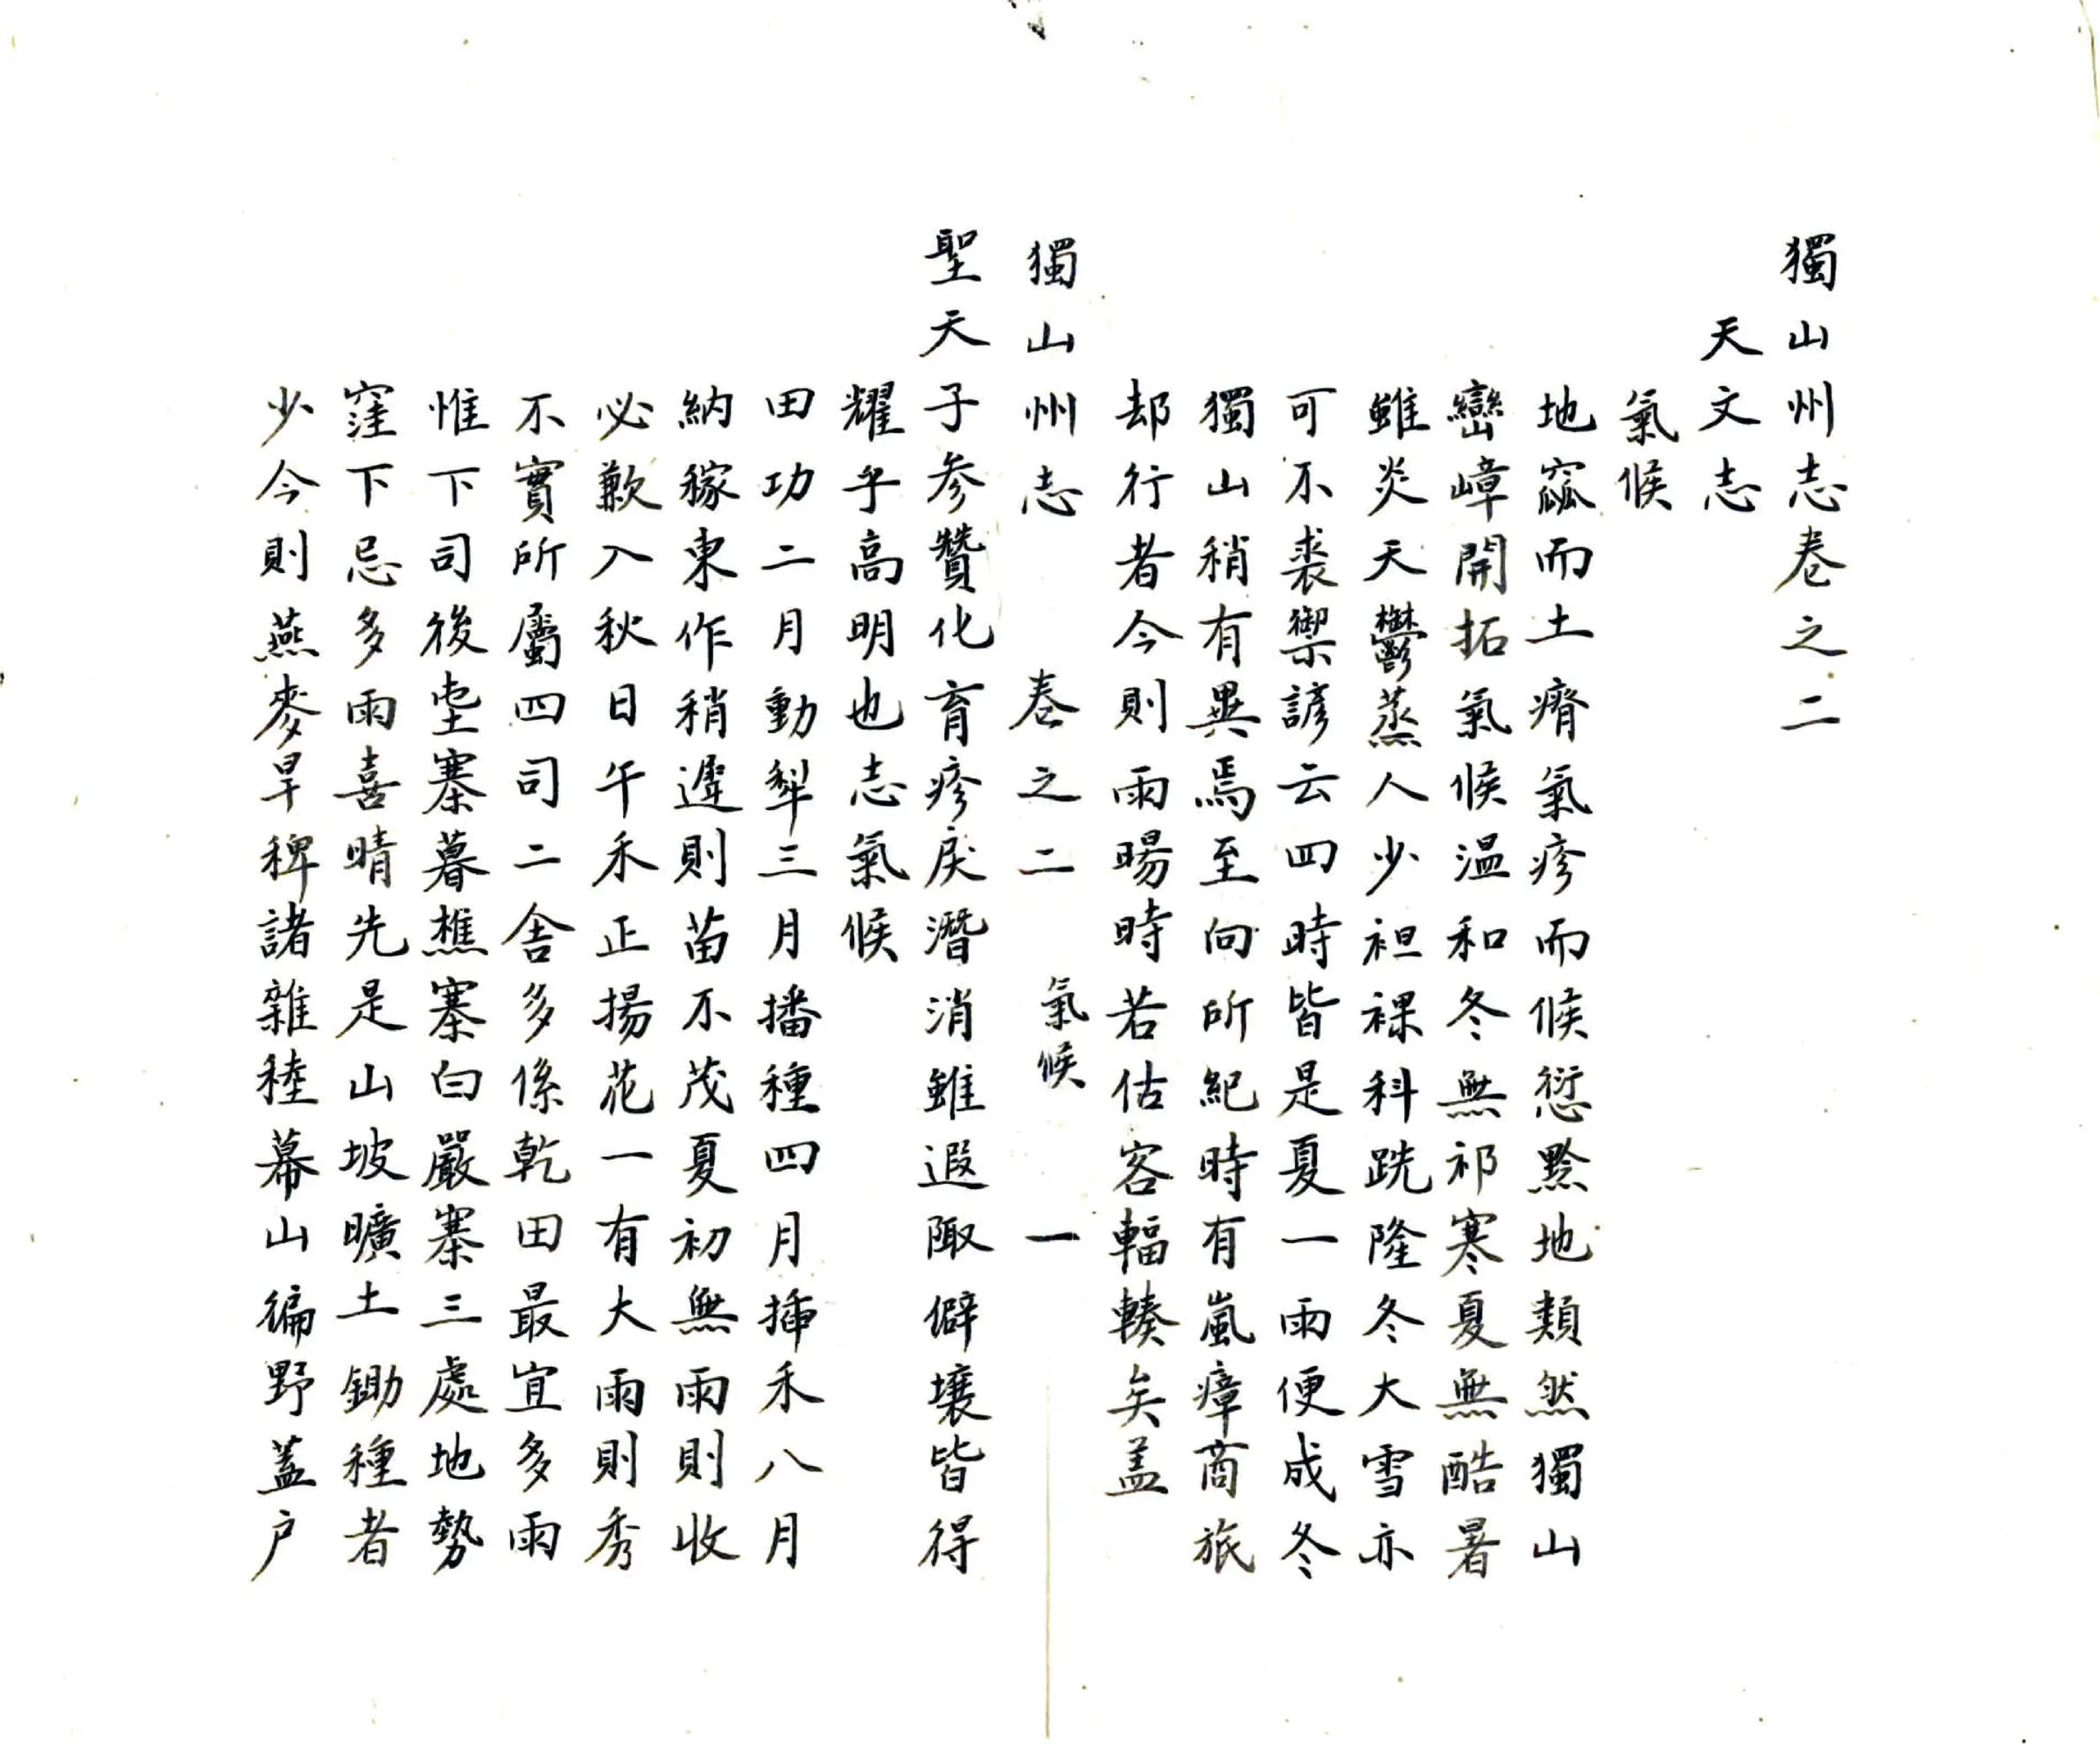 獨山州志卷之二
天文志
氣候
地窳而土瘠氣疹而候愆黔地類然獨山
巒嶂開拓氣候温和冬無祁寒夏無酷暑
雖炎天鬱蒸人少袒裸科跣隆冬大雪亦
可不裘禦諺云四時皆是夏一雨便成冬
獨山稍有異焉至向所紀時有嵐瘴商旅
却行者今則雨暘時若估客輻輳矣盖
獨山州志 卷之二 氣候 一
聖天子参贊化育疹戾潛消雖遐陬僻壤皆得
耀乎高明也志氣候
田功二月動犁三月播種四月揷禾八月
納稼東作稍遲則苗不茂夏初無雨則收
必歉入秋日午禾正揚花一有大雨則秀
不實所屬四司二舍多係乾田最宜多雨
惟下司後坉寨暮樵寨白嚴寨三處地勢
窪下忌多雨喜晴先是山坡曠土鋤種者
少今則燕麥旱稗諸雜稑幕山徧野蓋户